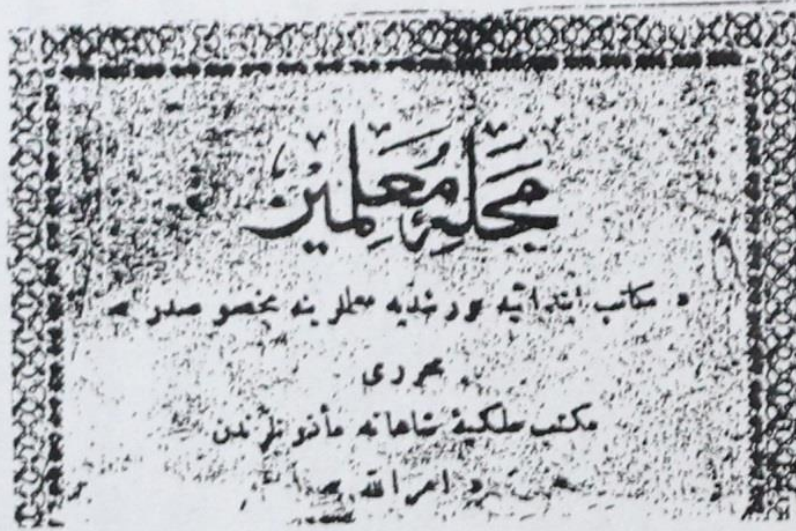 مجلهٔ معلمین
« مكاتب ابتدائيه و رشديه معلمرينه مخصوصدر »
محرری
مكتب ملكيهٔ شاهانه مأذونلرندن
امرالله